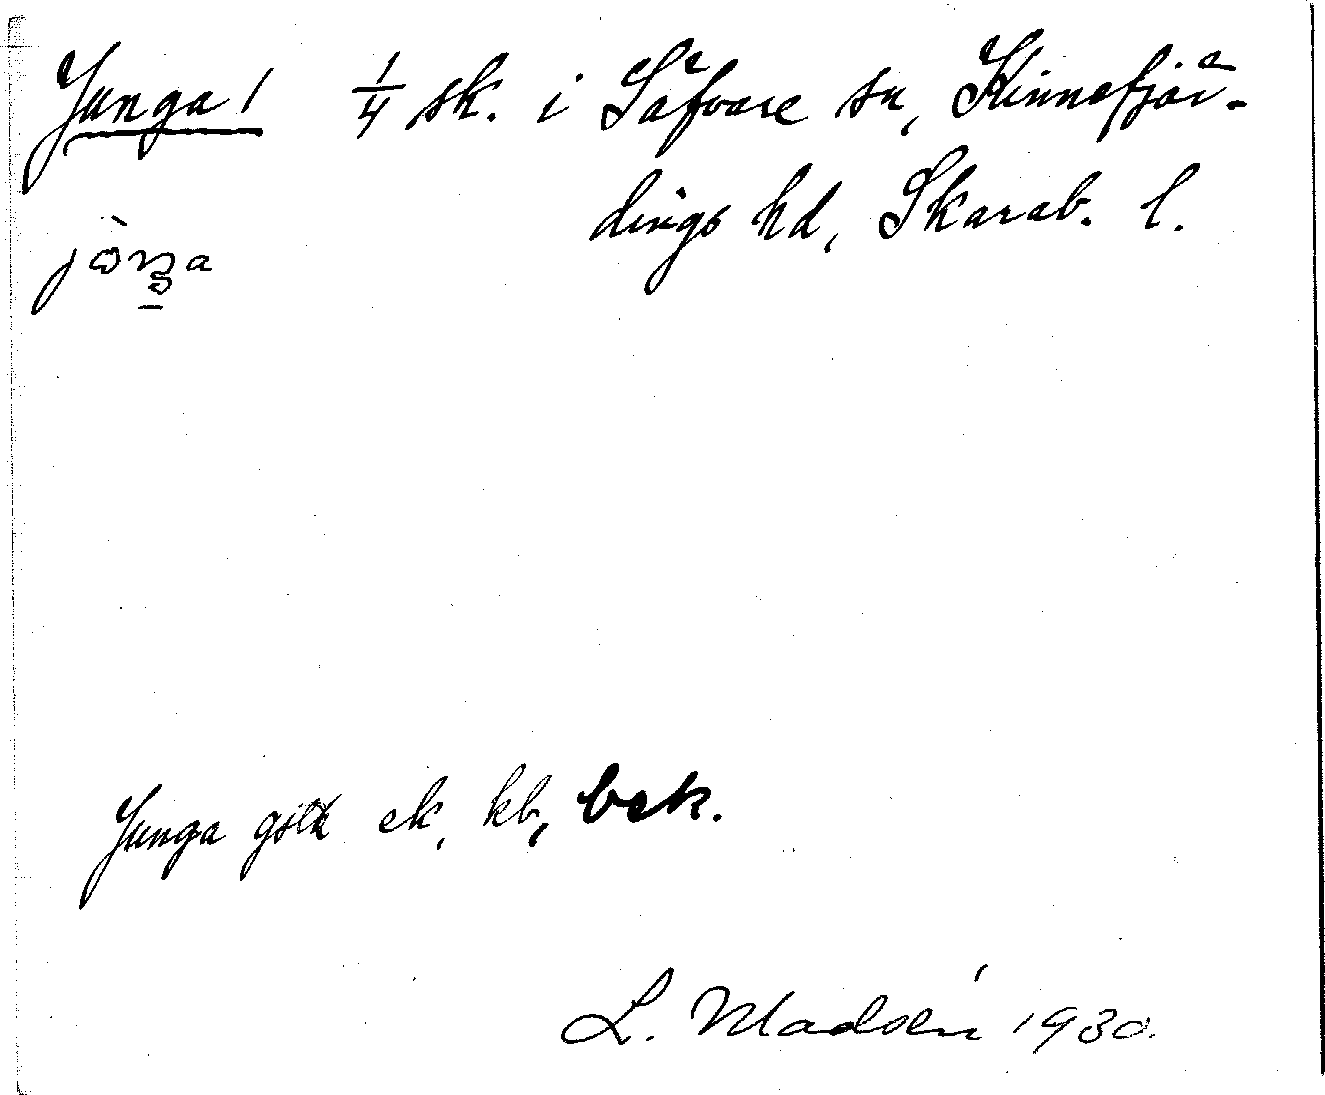 Junga 1 1/4 sk. i Säfvare sn, Kinnefjär-
dings hd, Skarab. l.
Junga ek, kb, bek.
L. Madsén 1930.